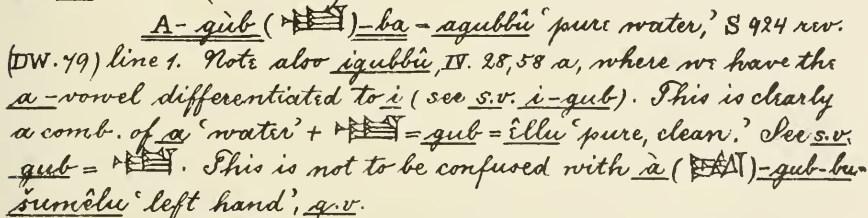 A-gùb ()-ba = agubbû ‘pure water,’ S 924 rev.
(DW. 79) line 1. Note also igubbû, IV. 28,58 a, where we have the
a-vowel differentiated to i (see s.v. i-gub). This is clearly
a comb. of a ‘water’ + = gub = êllu ‘pure, clean.’ See s.v.
gub = . This is not to be confused with à ()-gub-bu =
šumêlu ‘left hand’, q.v.